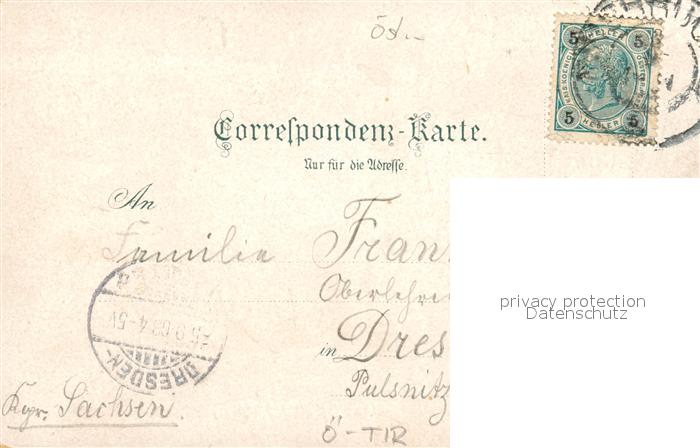 Öst.-
5 HELLER 5
5 HELLER 5
Correspondenz-Karte.
Nur für die Adresse.
An
Familie Fran
Oberlehre
in Dres
Pulsnitz
Kgr. Sachsen.
DRESDEN-
Ö-TIR
privacy protection
Datenschutz